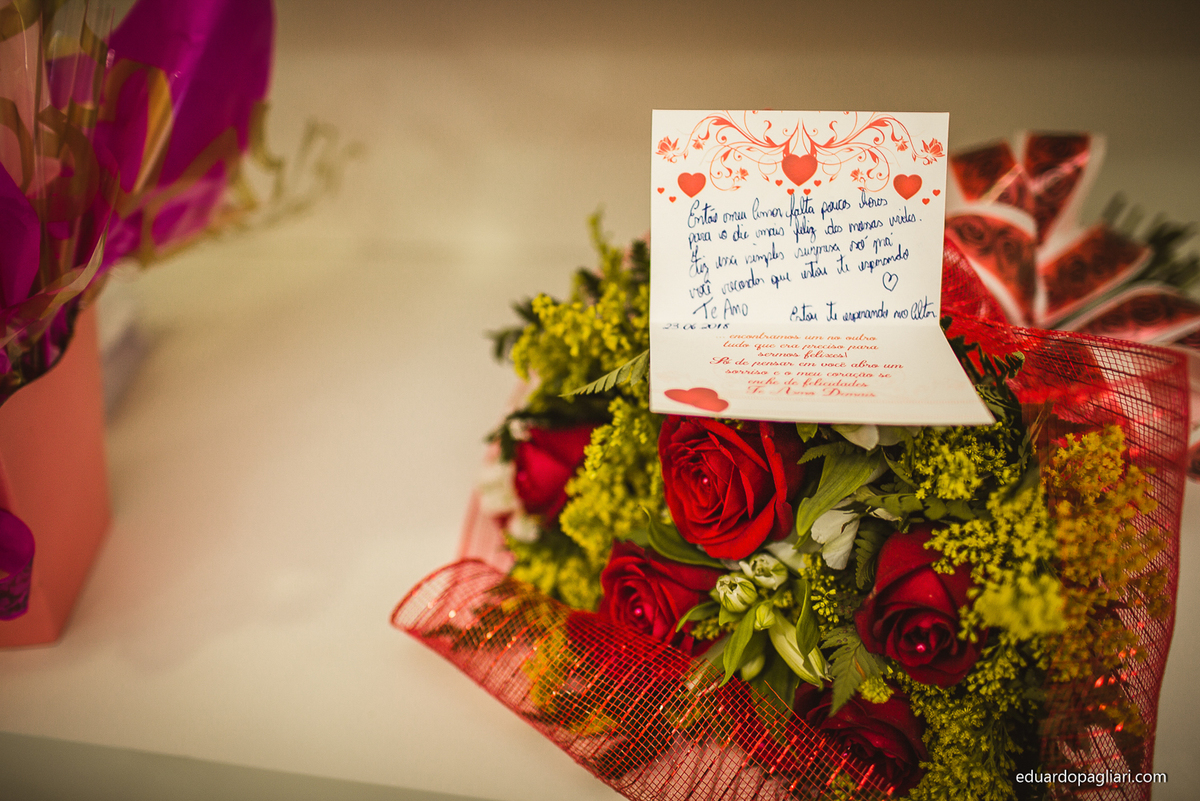 Então meu Amor falta poucas horas
para o dia mais feliz das nossas vidas.
fiz essa simples surpresa só prá
você recordar que estou te esperando
Te Amo Estou te esperando no Altar
23.06.2018
encontramos um no outro
tudo que era preciso para
sermos felizes!
Só de pensar em você abro um
sorriso e o meu coração se
enche de felicidades
Te Amo Demais
eduardopagliari.com